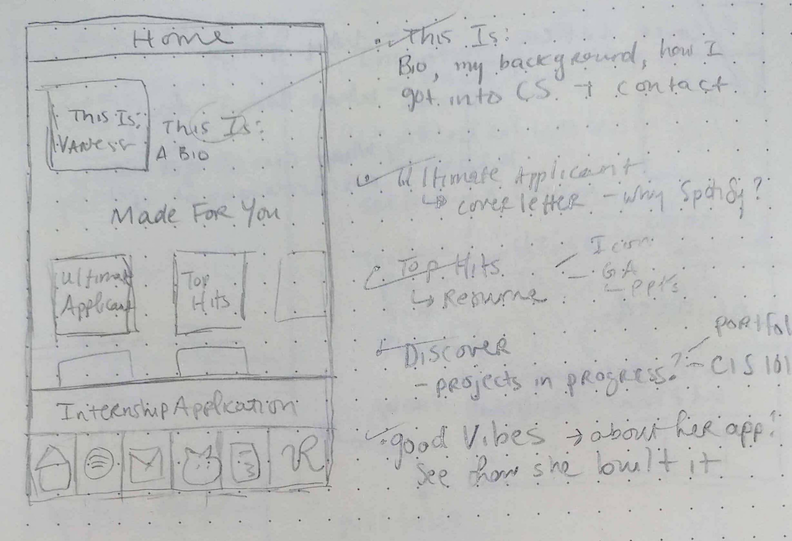 Home
This Is:
VANess
This Is:
A BIO
Made For You
Ultimate
Applicant
Top
Hits
Internship Application
VR
This Is:
Bio, my background, how I
got into CS + contact
Ultimate Applicant
↳ cover letter - why Spotify?
Top Hits
↳ Resume
- GA
- ppt's
Discover
- projects in progress?
- CIS 101
good Vibes → about her app!
See how she built it